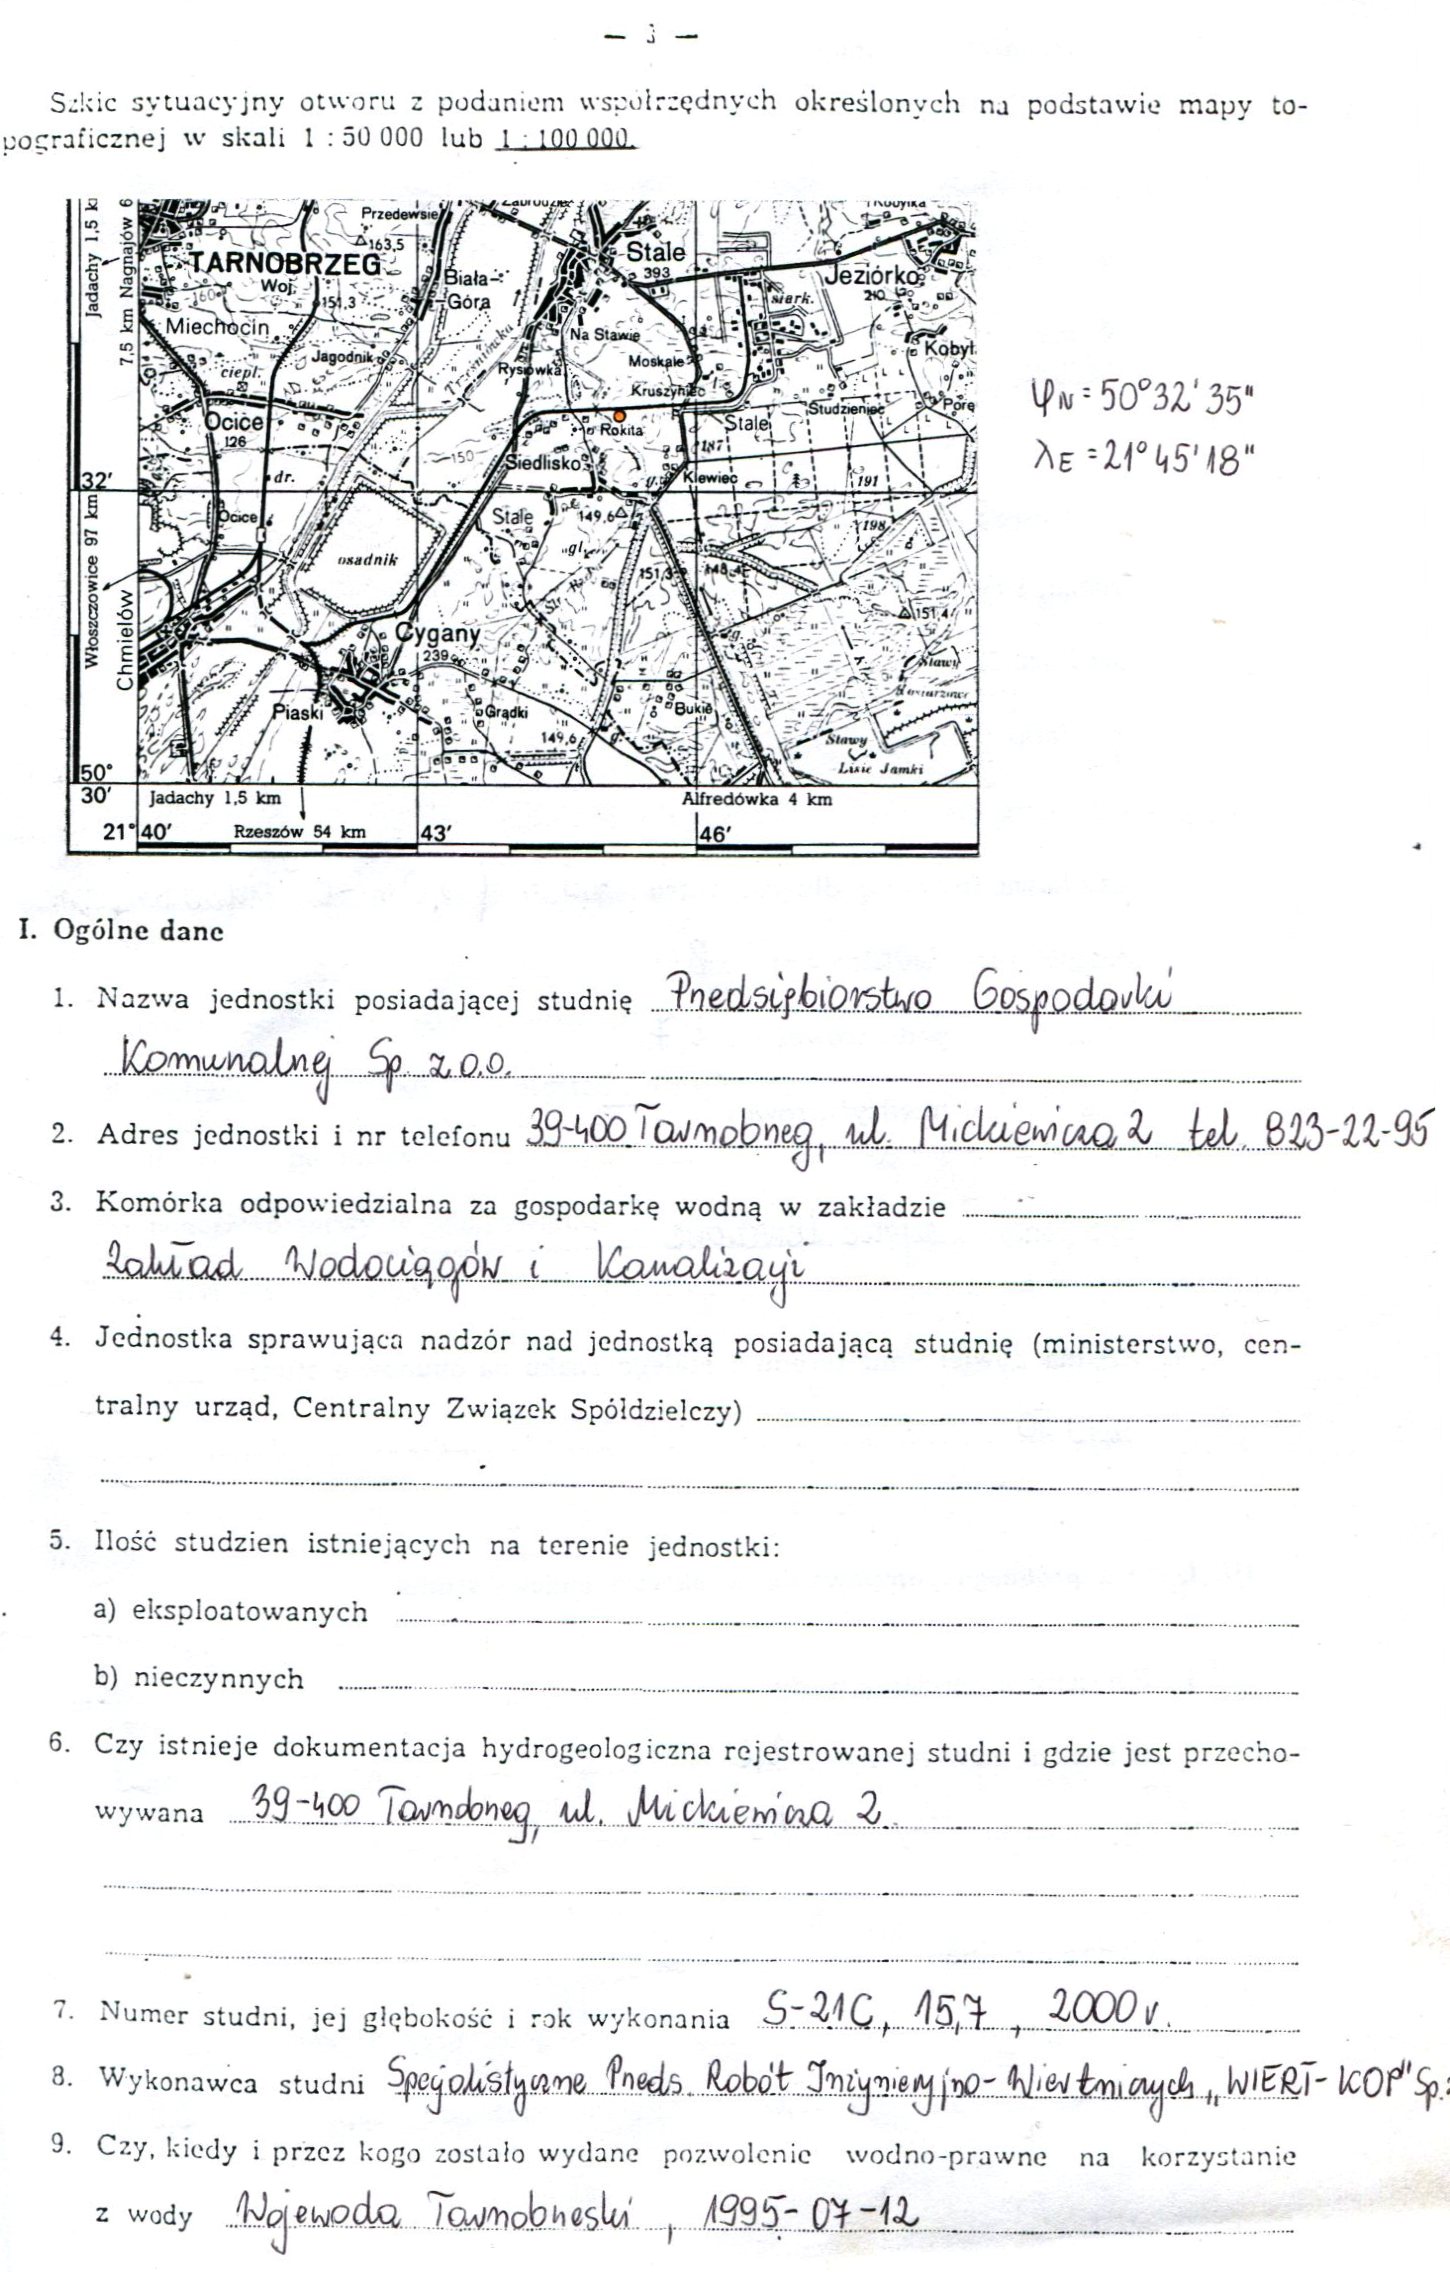 — 3 —
Szkic sytuacyjny otworu z podaniem współrzędnych określonych na podstawie mapy to-
pograficznej w skali 1 : 50 000 lub 1 : 100 000.
Jadachy 1,5 k
7,5 km Nagnajów 6
Przedewsie
163,5
TARNOBRZEG
Woj.
160
151,3
Biała-
Góra
Stale
393
siark.
Jeziórko
210
Miechocin
Jagodnik
ciepl.
Na Stawie
Rysiówka
Moskale
Kruszyniec
Kobył
Ocice
126
Rokita
Stale
Studzieniec
Porę
φN = 50°32'35"
λE = 21°45'18"
150
Siedlisko
187
32'
dr.
Klewiec
191
Ocice
Stale
149,6
198
osadnik
gl.
151,3
148,4
151,4
Włoszczowice 97 km
Chmielów
Cygany
239
Stawy
Piaski
Grądki
149,6
Bukie
Stawy
Lisie Jamki
50°
30'
Jadachy 1,5 km
Alfredówka 4 km
21° 40'
Rzeszów 54 km
43'
46'
I. Ogólne dane
1. Nazwa jednostki posiadającej studnię Przedsiębiorstwo Gospodarki
Komunalnej Sp. z o.o.
2. Adres jednostki i nr telefonu 39-400 Tarnobrzeg, ul. Mickiewicza 2 tel. 823-22-95
3. Komórka odpowiedzialna za gospodarkę wodną w zakładzie
Zakład Wodociągów i Kanalizacji
4. Jednostka sprawująca nadzór nad jednostką posiadającą studnię (ministerstwo, cen-
tralny urząd, Centralny Związek Spółdzielczy)
5. Ilość studzien istniejących na terenie jednostki:
a) eksploatowanych
b) nieczynnych
6. Czy istnieje dokumentacja hydrogeologiczna rejestrowanej studni i gdzie jest przecho-
wywana 39-400 Tarnobrzeg, ul. Mickiewicza 2.
7. Numer studni, jej głębokość i rok wykonania S-21C, 15,7, 2000 r.
8. Wykonawca studni Specjalistyczne Przeds. Robót Inżynieryjno-Wiertniczych „WIERT-KOP" Sp. z
9. Czy, kiedy i przez kogo zostało wydane pozwolenie wodno-prawne na korzystanie
z wody Wojewoda Tarnobrzeski, 1995-07-12